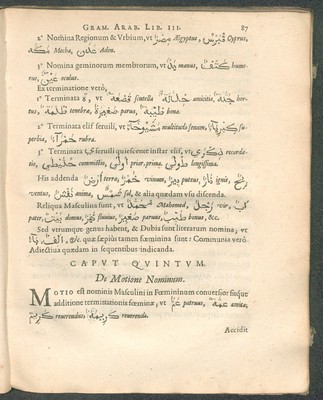 GRAM. ARAB. LIB. III. 87
2° Nomina Regionum & Vrbium, vt مصر Ægyptus, قبرس Cyprus,
مكه Mecha, عدن Aden.
3° Nomina geminorum membrorum, vt يد manus, كتف hume-
rus, عين oculus.
Ex terminatione verò,
1° Terminata ة, vt قصعة scutella amicitia, hor-
tus, ظلمة tenebra, صغيرة parua, طيبة bona.
2° Terminata elif feruili, vt multitudo senum, كبرياء su-
perbia, حمراء rubra.
3° Terminata feruili quiescente instar elif, vt ذكرى recorda-
tio, commistio, اولى prior, prima. طولى longissima.
His addenda ارض terra, خمر vinum, بير puteus, نار ignis, ريح
ventus, نفس anima, شمس sol, & alia quædam vsu discenda.
Reliqua Masculina sunt, vt محمد Mahomed, رجل vir, اب
pater, بيت domus, فنجان sinulus, صغير paruus, طيب bonus, &c.
Sed vtrumque genus habent, & Dubia sunt literarum nomina; vt
الف, باء &c. quæ sæpius tamen fœminina sunt: Communia verò
Adiectiua quædam in sequentibus indicanda.
CAPVT QVINTVM.
De Motione Nominum.
MOTIO est nominis Masculini in Fœmininum conuersio: fitque
additione terminationis fœmineæ, vt عم patruus, عمة amita,
كريم reuerendus, كريمة reuerenda.
Accidit